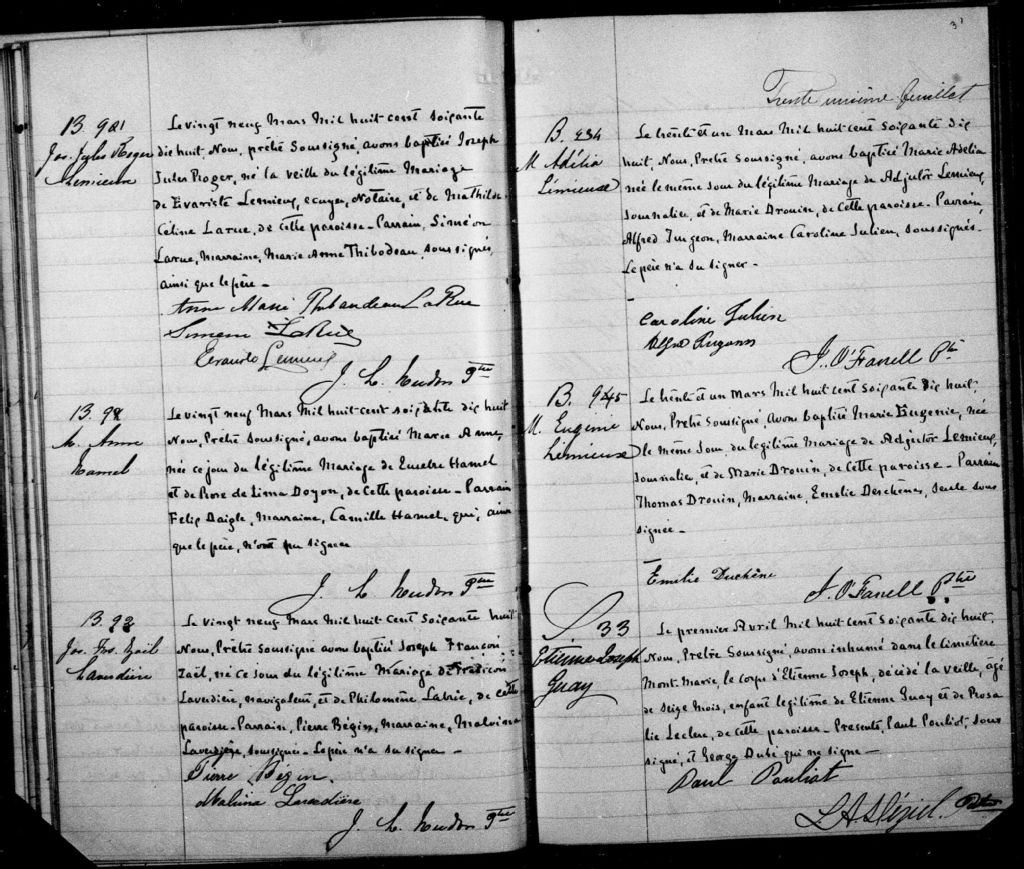 B. 921
Jos. Jules Roger
Lemieux
Le vingt neuf Mars Mil huit cent soiçante
dix huit, Nous, prêtre Soussigné, avons baptisé Joseph
Jules Roger, né la veille du légitime Mariage
de Evariste Lemieux, ecuyer, Notaire, et de Mathilde
Céline Larue, de cette paroisse - Parrain, Siméon
Larue, Marraine, Marie Anne Thibodeau, soussignés,
ainsi que le père -
Anne Marie LaRue
Simeon LaRue
Evariste Lemieux
J. Ptre
B. 92
M. Anne
Hamel
Le vingt neuf Mars Mil huit cent soiçante dix huit
Nous, Prêtre soussigné, avons baptisé Marie Anne,
née ce jour du légitime Mariage de Hamel
et de Rose de Lima Doyon, de cette paroisse - Parrain
Felix Daigle, Marraine, Camille Hamel, qui, ainsi
que le père, n'ont pu signer
J. Ptre
B. 93
Jos. Frs. Zaïl
Laverdière
Le vingt neuf Mars Mil huit cent Soiçante huit
Nous, Prêtre soussigné avons baptisé Joseph François
Zaïl, né ce jour du légitime Mariage de
Laverdière, navigateur, et de Philomène Labrie, de cette
paroisse - Parrain, Pierre Bégin, Marraine, Malvina
Laverdière, soussignés - Le père n'a su signer -
Pierre Bégin,
Malvina Laverdière
J. Ptre
31
Trente unième feuillet
B. 934
M. Adélia
Lémieuse
Le trente et un Mars Mil huit cent Soiçante dix
huit, Nous, Prêtre Soussigné, avons baptisé Marie Adelia
née le même jour du légitime Mariage de Adjutor Lemieux,
Journalier, et de Marie Drouin, de cette paroisse - Parrain
Alfred Turgeon, Marraine Caroline Julien, soussignés.
Le père n'a su signer -
Caroline Julien
Alfred
J. O'Farrell Ptre
B. 945
M. Eugenie
Lémieuse
Le trente et un Mars Mil huit cent Soiçante dix huit,
Nous, Prêtre Soussigné, avons baptisé Marie Eugenie, née
le même jour, du légitime Mariage de Adjutor Lemieux,
Journalier, et de Marie Drouin, de cette paroisse - Parrain
Thomas Drouin, Marraine, Emélie Deschênes, seule sous
signée -
Emilie Duchêne
J. O'Farrell Ptre
S. 33
Etienne Joseph
Guay
Le premier Avril Mil huit cent Soiçante dix huit,
Nous, Prêtre Soussigné, avons inhumé dans le Cimetière
Mont-Marie, le corps d'Etienne Joseph, décédé la veille, agé
de Seize Mois, enfant légitime de Etienne Guay et de Rosa
lie Leclerc, de cette paroisse - Presents, Paul Pouliot, sous
signé, et George Dubé qui ne signe -
Paul Pouliot
Ptre